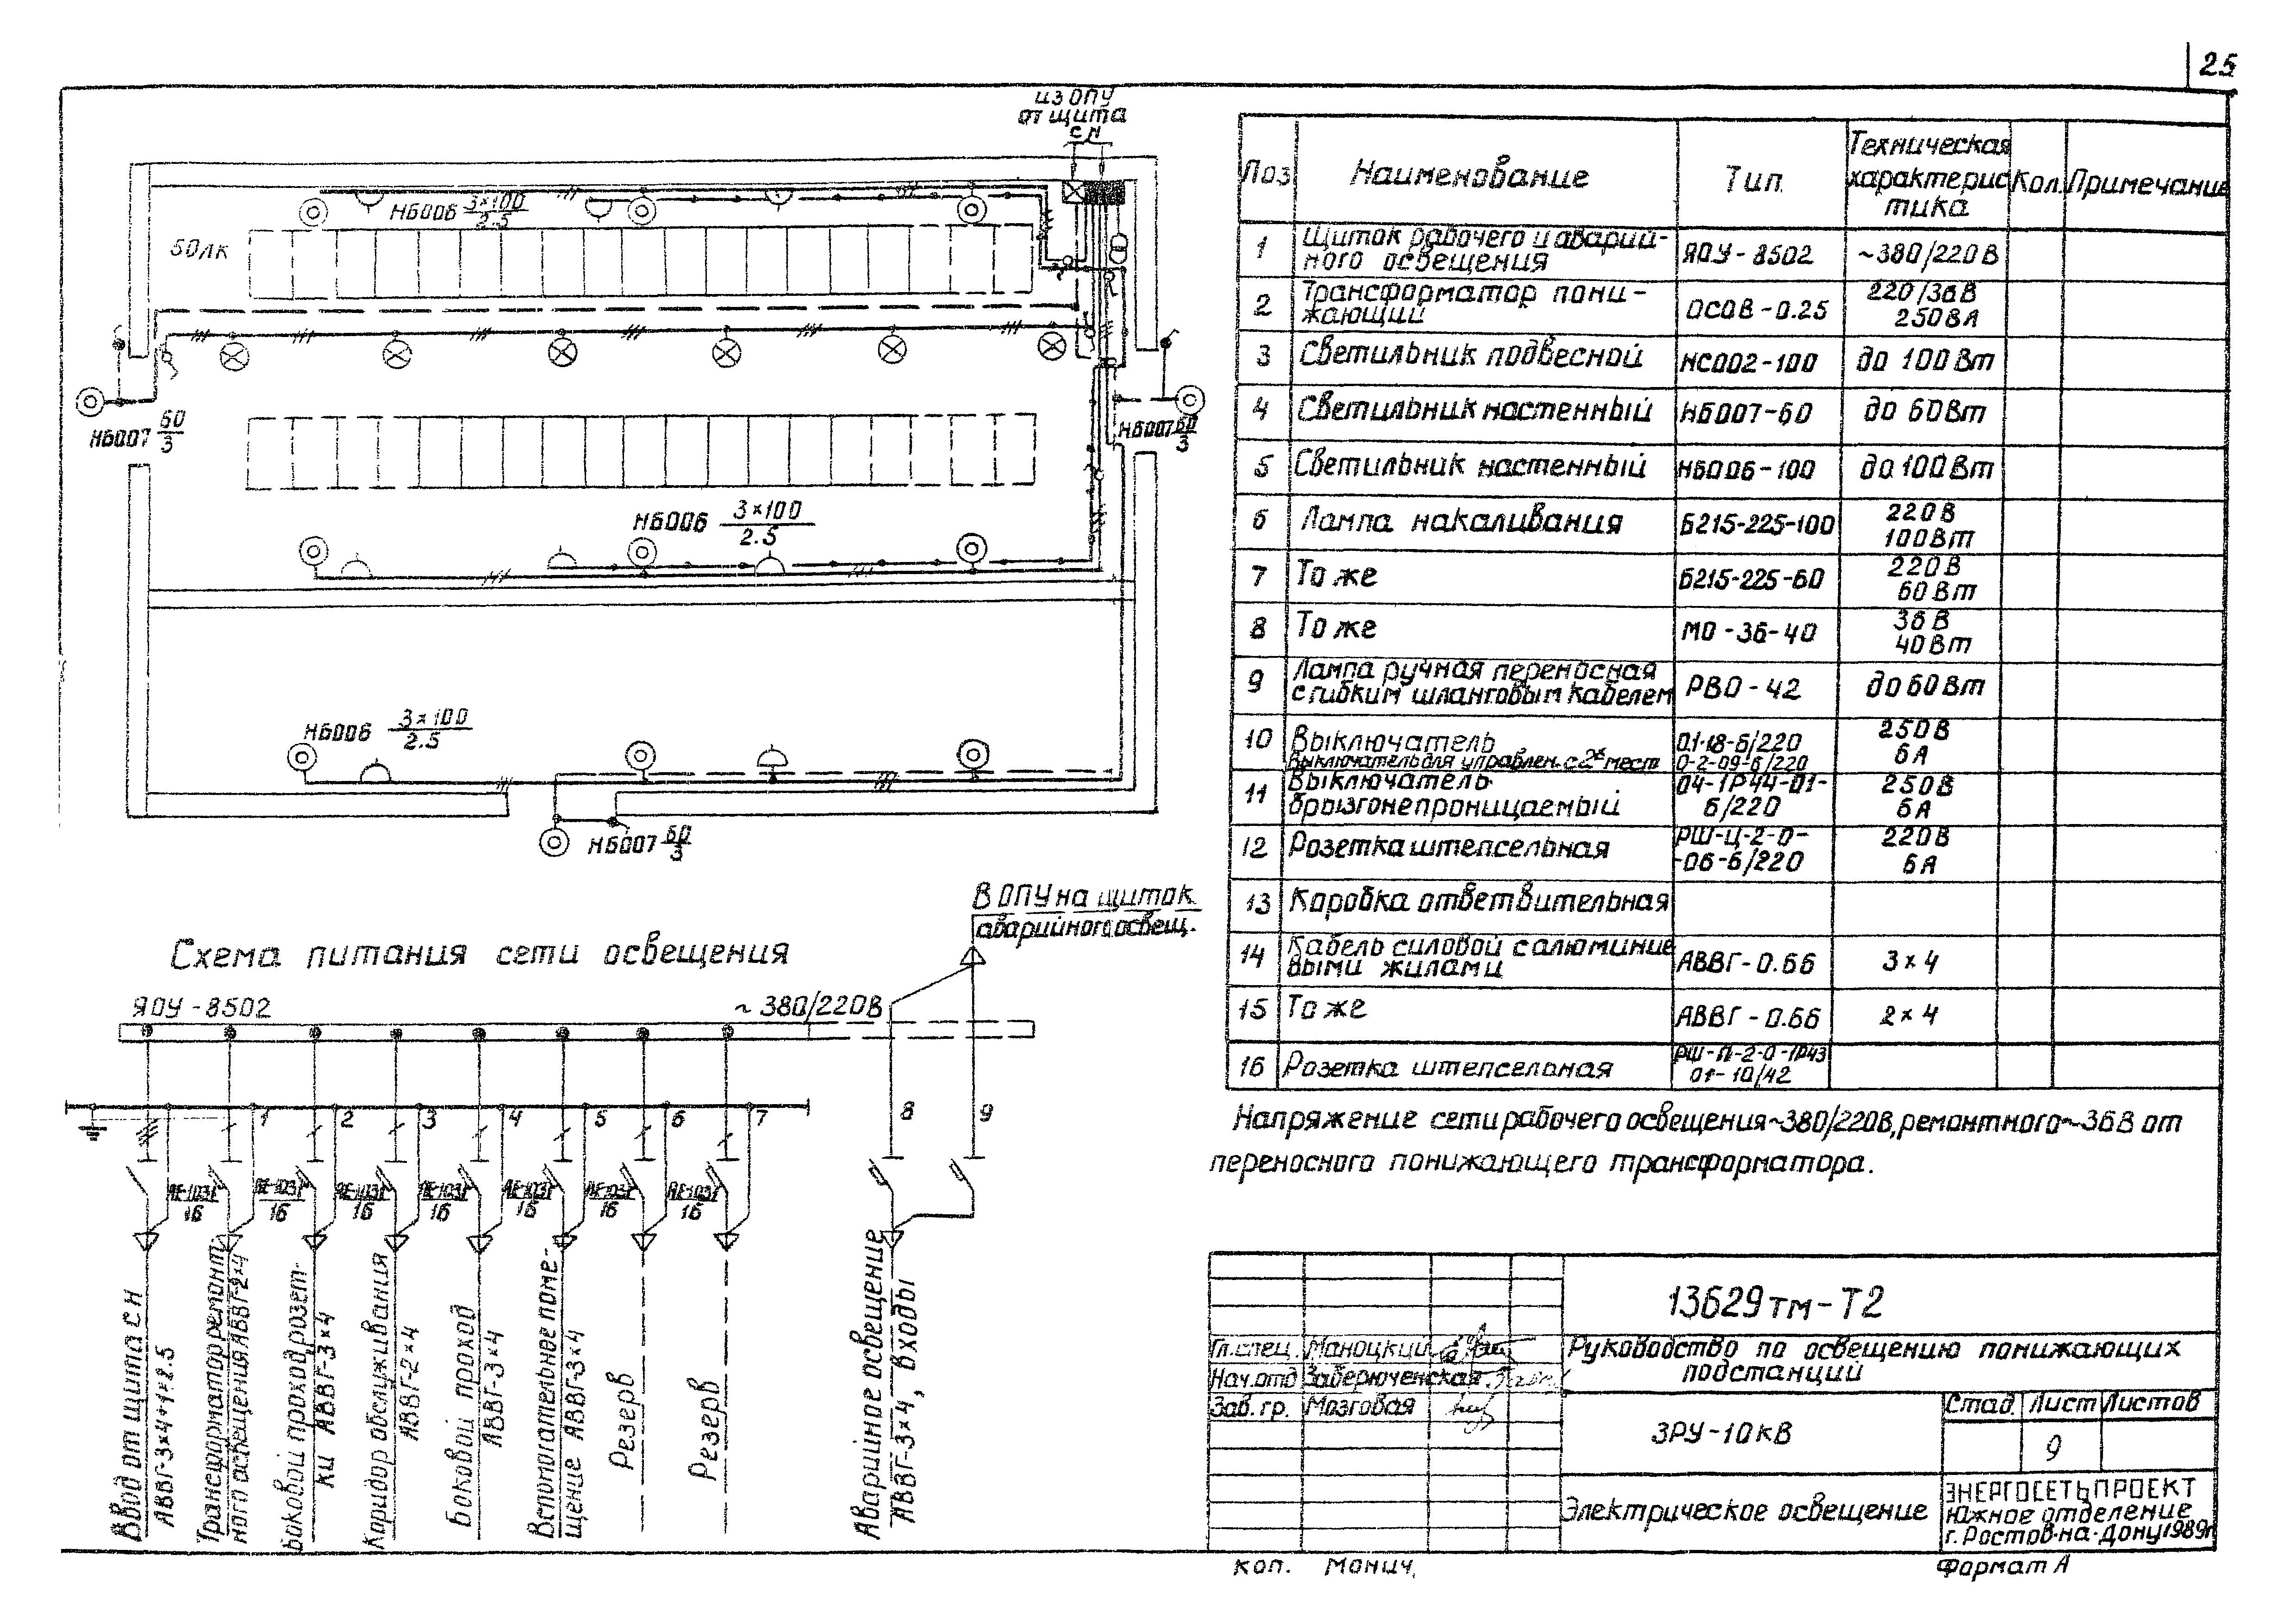 25
из ОПУ
от щита
с н
НБ006 3×100
2.5
50лк
НБ007 60
3
НБ007 60
3
НБ006 3×100
2.5
НБ006 3×100
2.5
НБ007 60
3
Схема питания сети освещения
В ОПУ на щиток
аварийного освещ.
ЯОУ-8502
~380/220В
1 2 3 4 5 6 7 8 9
АЕ-1031
16
АЕ-1031
16
АЕ-1031
16
АЕ-1031
16
АЕ-1031
16
АЕ-1031
16
АЕ-1031
16
Ввод от щита с н
АВВГ-3×4+1×2.5
Трансформатор ремонт-
ного освещения АВВГ-2×4
Боковой проход розет-
ки АВВГ-3×4
Коридор обслуживания
АВВГ-2×4
Боковой проход
АВВГ-3×4
Вспомогательное поме-
щение АВВГ-3×4
Резерв
Резерв
Аварийное освещение
АВВГ-3×4, входы
Поз Наименование Тип Техническая характерис тика Кол. Примечание
1 Щиток рабочего и аварий-
ного освещения ЯОУ-8502 ~380/220В
2 Трансформатор пони-
жающий ОСОВ-0.25 220/36В
250ВА
3 Светильник подвесной НСО02-100 до 100Вт
4 Светильник настенный НБ007-60 до 60Вт
5 Светильник настенный НБ006-100 до 100Вт
6 Лампа накаливания Б215-225-100 220В
100Вт
7 То же Б215-225-60 220В
60Вт
8 То же МО-36-40 36В
40Вт
9 Лампа ручная переносная
с гибким шланговым кабелем РВО-42 до 60Вт
10 Выключатель 0.1-18-6/220 250В
Выключатель для управлен. с 2х мест 0-2-09-6/220 6А
11 Выключатель 04-1Р44-01- 250В
брызгонепроницаемый 6/220 6А
12 Розетка штепсельная РШ-Ц-2-0- 220В
-06-6/220 6А
13 Коробка ответвительная
14 Кабель силовой с алюминие
выми жилами АВВГ-0.66 3×4
15 То же АВВГ-0.66 2×4
16 Розетка штепсельная РШ-П-2-0-1Р43
01-10/42
Напряжение сети рабочего освещения~380/220В, ремонтного~36В от
переносного понижающего трансформатора.
13629тм-Т2
Гл.спец. Маноцкий
Нач.отд Заберюченская
Зав.гр. Мозговая
Руководство по освещению понижающих
подстанций
ЗРУ-10кВ
Стад. Лист Листов
9
Электрическое освещение
ЭНЕРГОСЕТЬПРОЕКТ
Южное отделение
г. Ростов-на-Дону 1989г
коп. Монич.
Формат А